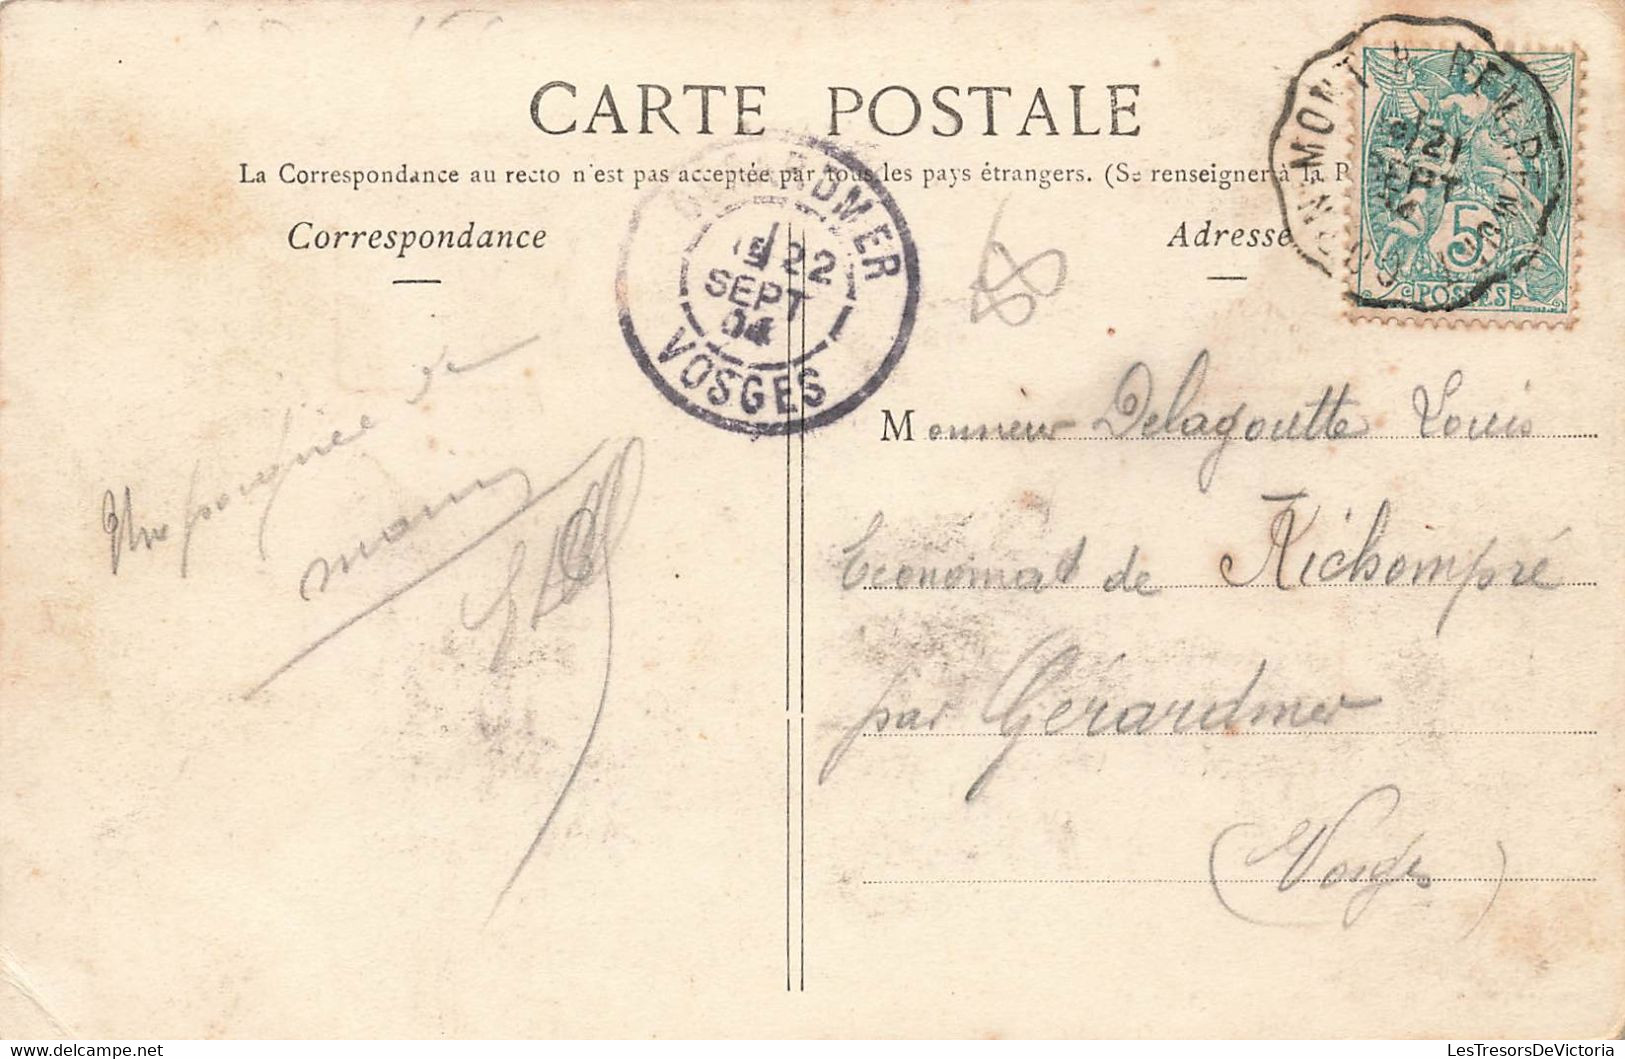 CARTE POSTALE
La Correspondance au recto n'est pas acceptée par tous les pays étrangers. (Se renseigner à la P
Correspondance
Adresse
GERARDMER
22
SEPT
04
VOSGES
21
SEPT
5
POSTES
Une poignée de
main
Monsieur Delagoutte Louis
Economat de Kichompré
par Gérardmer
(Vosges)
LesTresorsDeVictoria